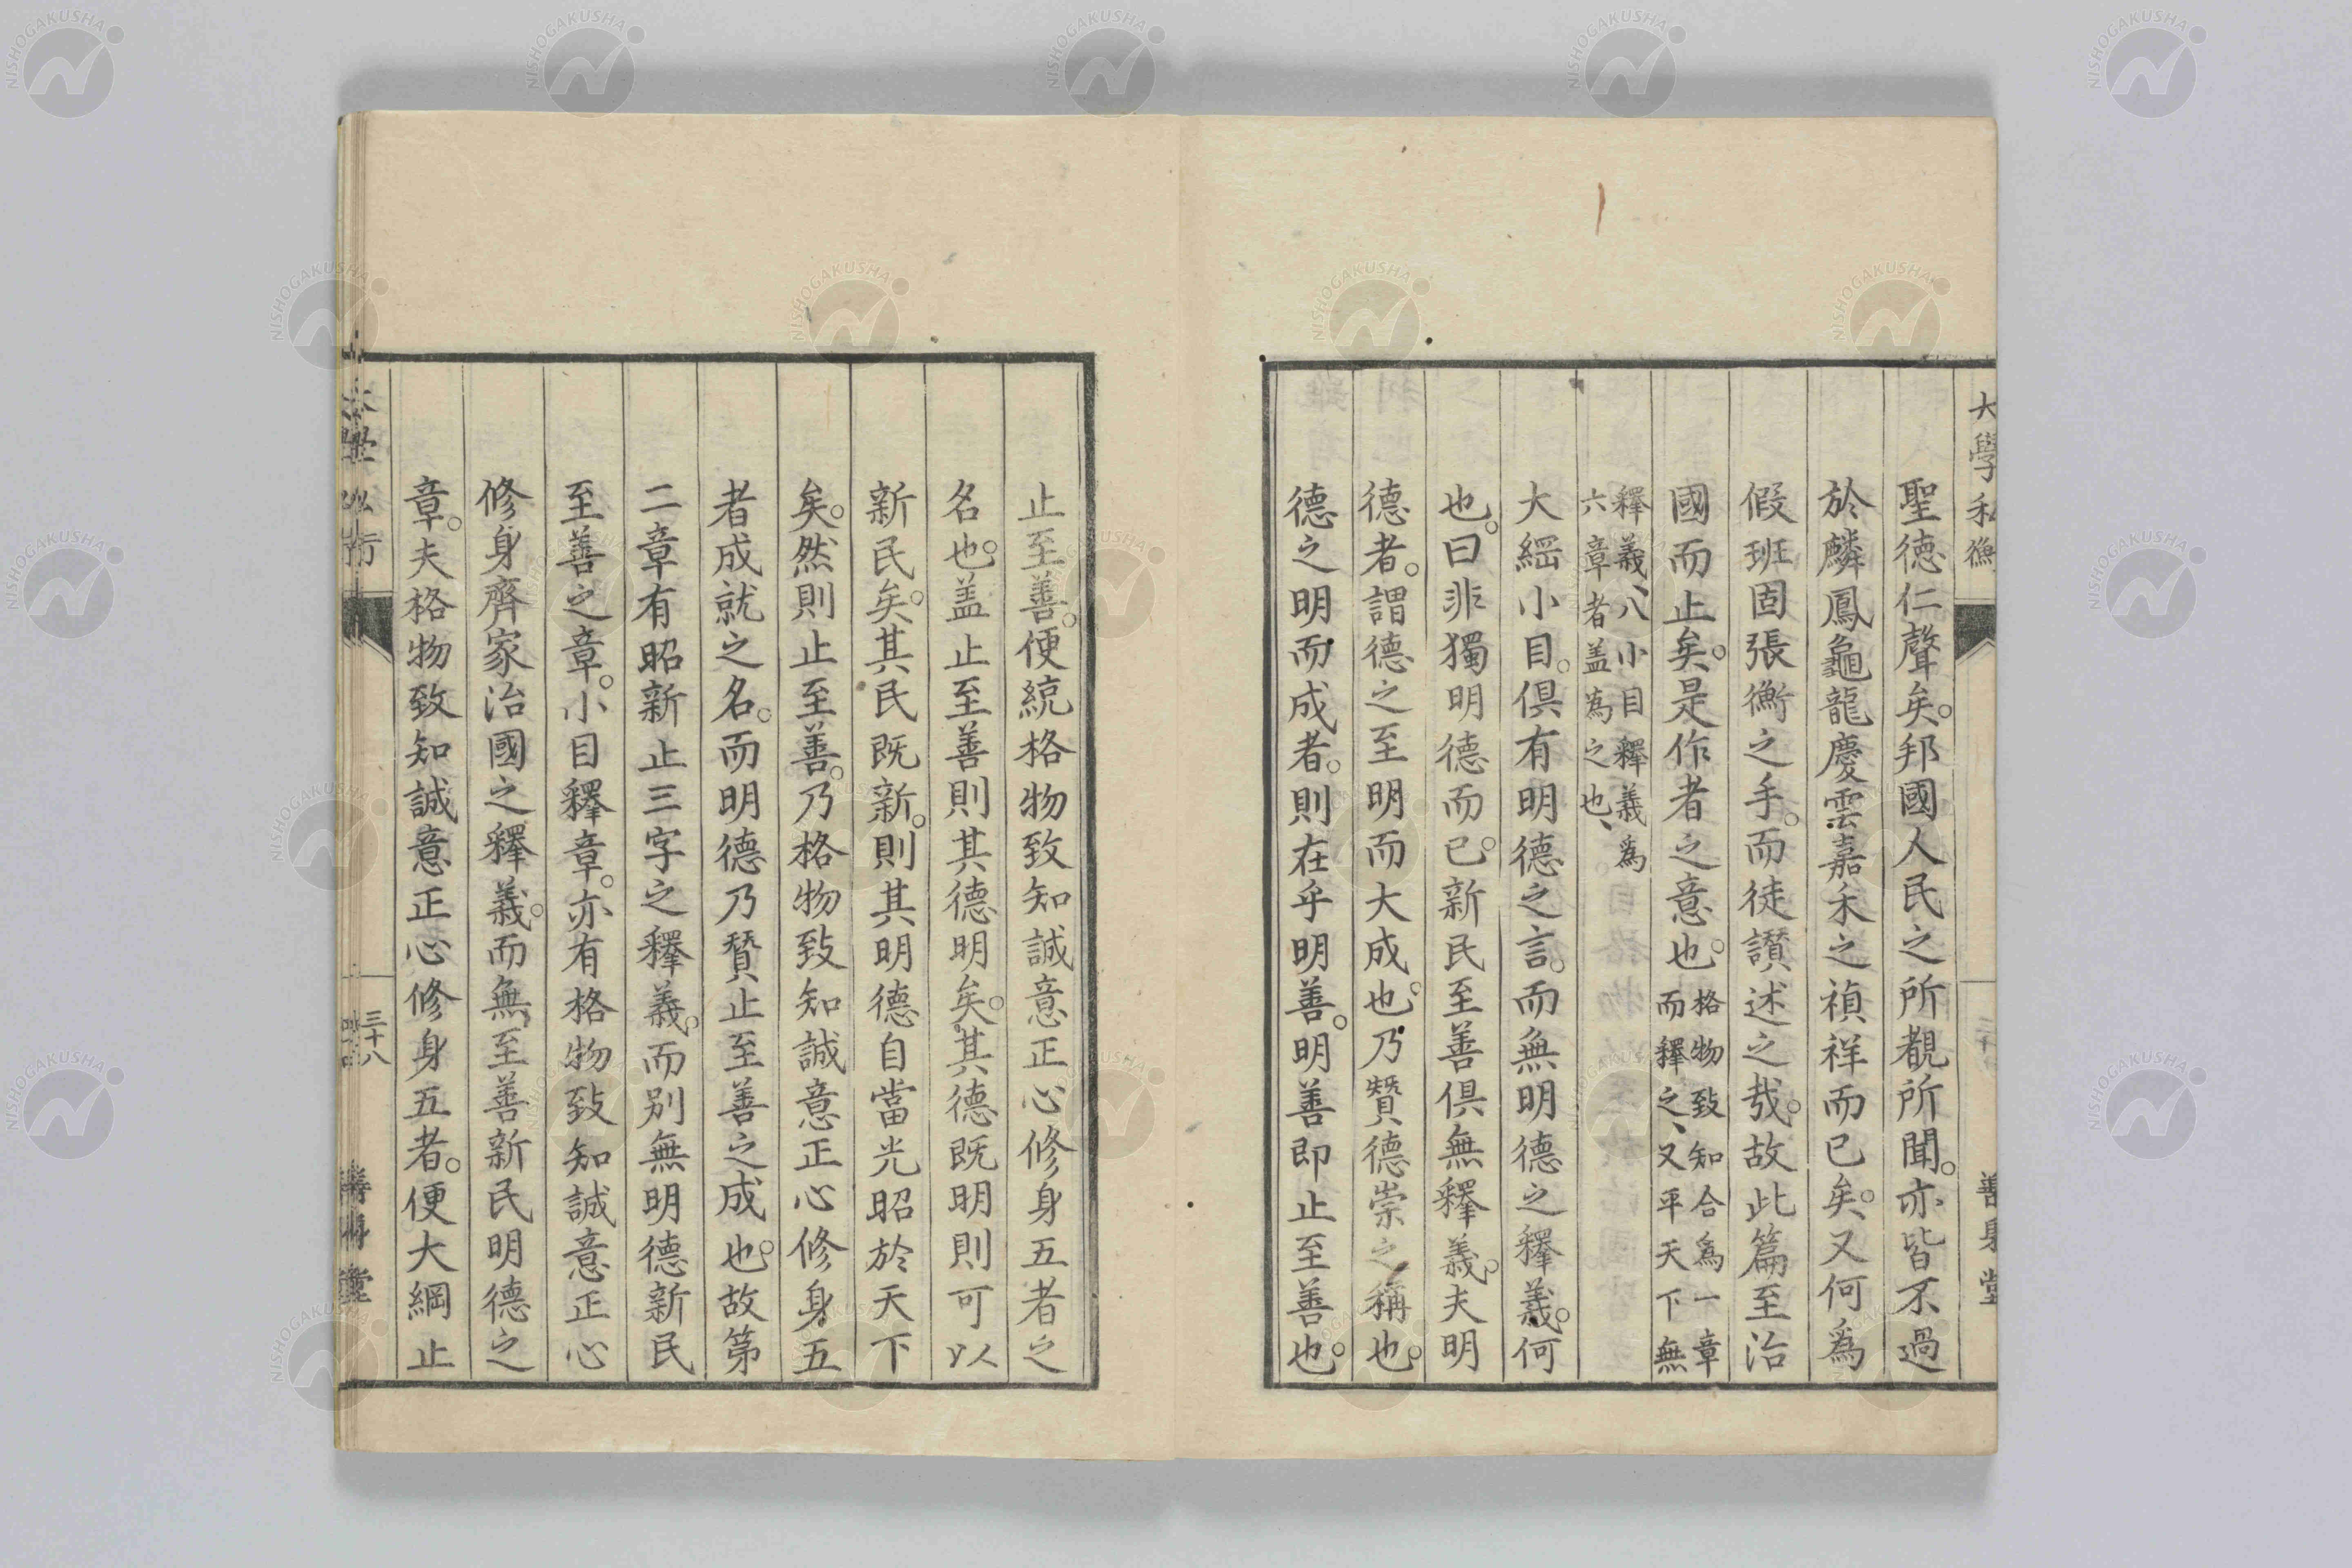 大學私衡
善身堂
聖徳仁聲矣。邦國人民之所覩所聞。亦皆不過
於麟鳳龜龍慶雲嘉禾之禎祥而已矣。又何爲
假班固張衡之手。而徒讃述之哉。故此篇至治
國而止矣。是作者之意也。格物致知合爲一章
而釋之、又平天下無
釋義、八小目釋義爲
六章者盖爲之也、
大綱小目。俱有明德之言。而無明德之釋義。何
也。曰非獨明德而已。新民至善俱無釋義。夫明
德者。謂德之至明而大成也。乃贊德崇之稱也。
德之明而成者。則在乎明善。明善即止至善也。
止至善。便統格物致知誠意正心修身五者之
名也。盖止至善則其德明矣。其德既明則可以
新民矣。其民既新。則其明德自當光昭於天下
矣。然則止至善。乃格物致知誠意正心修身五
者成就之名。而明德乃贊止至善之成也。故第
二章有昭新止三字之釋義。而別無明德新民
至善之章。小目釋章。亦有格物致知誠意正心
修身齊家治國之釋義。而無至善新民明德之
章。夫格物致知誠意正心修身五者。便大綱止
三十八
NISHOGAKUSHA